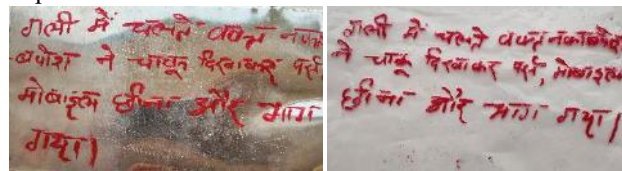 गली में चलते वक्त नका
बपोश ने चाकू दिखाकर पर्स
मोबाइल छीना और भाग
गया।
गली में चलते वक्त नकाबपोश
ने चाकू दिखाकर पर्स, मोबाइल
छीना और भाग गया।